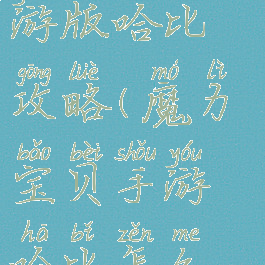 游版哈比
gōng lüè mó lì
攻略(魔力
bǎo bèi shǒu yóu
宝贝手游
hā bǐ zěn me
哈比怎么